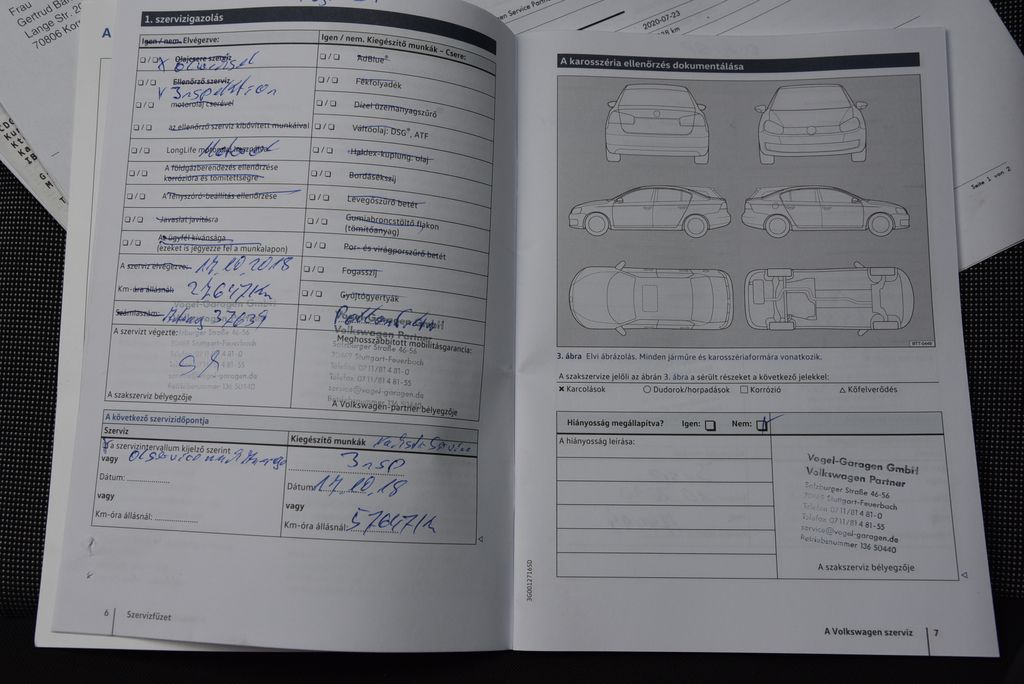 Frau
Lange Str. 2
70806 Kor
A
2020-07-23
Seite 1 von 2
1. szervizigazolás
Igen / nem. Elvégezve:
Igen / nem. Kiegészítő munkák – Csere:
Olajcsere szerviz
Ölwechsel
AdBlue®
Ellenőrző szerviz
Inspektion
motorolaj cserével
Fékfolyadék
Dízel üzemanyagszűrő
az ellenőrző szerviz kibővített munkáival
Váltóolaj: DSG®, ATF
LongLife
Haldex-kuplung. olaj
A földgázberendezés ellenőrzése
korrózióra és tömítettségre
Bordásékszíj
A fényszóró-beállítás ellenőrzése
Levegőszűrő betét
Javaslat javításra
Gumiabroncstöltő flakon
(tömítőanyag)
Az ügyfél kívánsága
(ezeket is jegyezze fel a munkalapon)
Por- és virágporszűrő betét
A szerviz elvégezve: 17.10.2018
Fogasszíj
Km-óra állásnál: 27647 Km
Gyújtógyertyák
Számlaszám: 37639
Meghosszabbított mobilitásgarancia:
A szervizt végezte:
Vogel-Garagen GmbH
Volkswagen Partner
Salzburger Straße 46-56
70469 Stuttgart-Feuerbach
Telefon 07 11/81 4 81-0
Telefax 07 11/81 4 81-55
service@vogel-garagen.de
Betriebsnummer 136 50440
A szakszerviz bélyegzője
A Volkswagen-partner bélyegzője
A következő szervizidőpontja
Szerviz
Kiegészítő munkák
a szervizintervallum kijelző szerint
vagy
Insp
Dátum:
Dátum: 17.10.18
vagy
vagy
Km-óra állásnál:
Km-óra állásnál: 57647 Km
6
Szervizfüzet
A karosszéria ellenőrzés dokumentálása
BTT-0449
3. ábra Elvi ábrázolás. Minden járműre és karosszériaformára vonatkozik.
A szakszervize jelöli az ábrán 3. ábra a sérült részeket a következő jelekkel:
× Karcolások
○ Dudorok/horpadások
□ Korrózió
△ Kőfelverődés
Hiányosság megállapítva? Igen: Nem:
A hiányosság leírása:
Vogel-Garagen GmbH
Volkswagen Partner
Salzburger Straße 46-56
70469 Stuttgart-Feuerbach
Telefon 07 11/81 4 81-0
Telefax 07 11/81 4 81-55
service@vogel-garagen.de
Betriebsnummer 136 50440
A szakszerviz bélyegzője
3G0012716SD
A Volkswagen szerviz
7